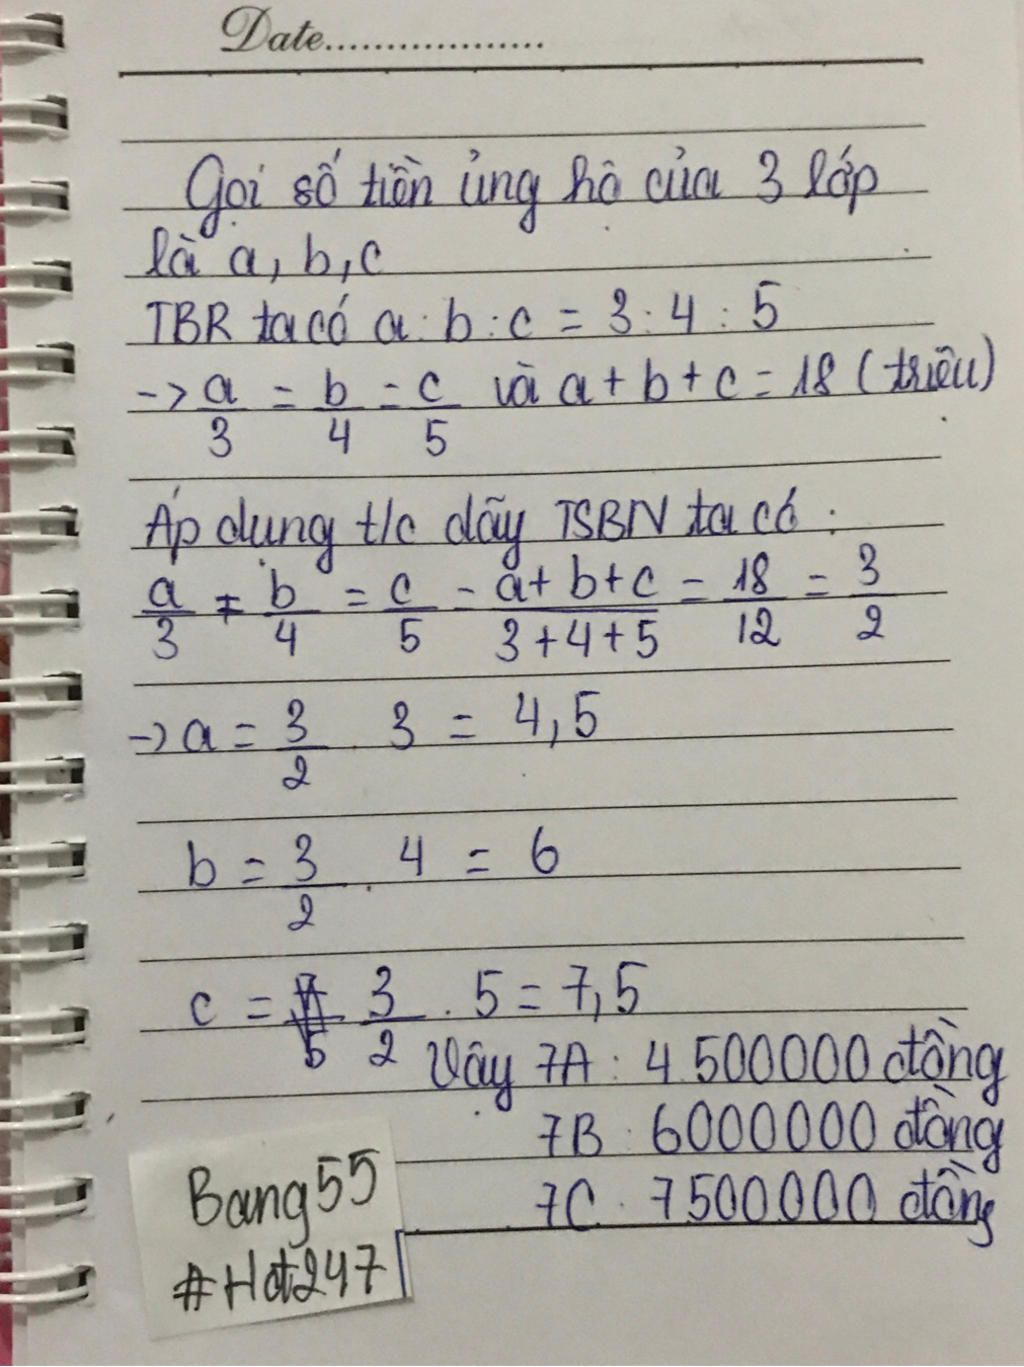 Date...................
Gọi số tiền ủng hộ của 3 lớp
là a, b, c
TBR ta có a : b : c = 3 : 4 : 5
-> a/3 = b/4 = c/5 và a + b + c = 18 (triệu)
Áp dụng t/c dãy TSBN ta có :
a/3 = b/4 = c/5 = a+b+c/3+4+5 = 18/12 = 3/2
-> a = 3/2 . 3 = 4,5
b = 3/2 . 4 = 6
c = 3/2 . 5 = 7,5
Vậy 7A : 4.500000 đồng
7B : 6000000 đồng
7C : 7500000 đồng
Bang55
#Hot247